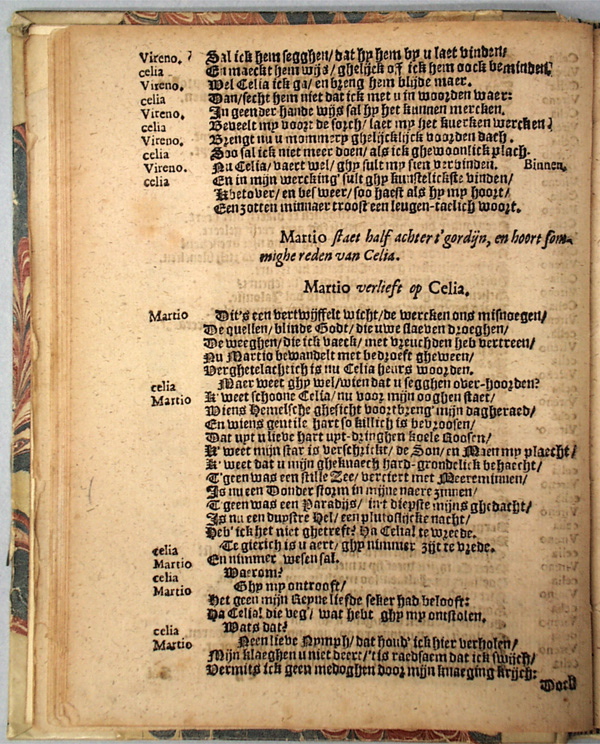 Vireno. Sal ick hem segghen/ dat hy hem by u laet vinden/
celia En maeckt hem wijs/ ghelijck off ick hem oock beminden?
Vireno. Wel Celia ick ga/ en breng hem blijde maer.
celia Dan/ secht hem niet dat ick met u in woorden waer:
Vireno. In geender hande wijs sal hy het kunnen mercken.
celia Beveelt my voort de sorch/ laet my het kuerken wercken?
Vireno. Brengt nu u mommery ghelijcklijck voorden dach.
celia Soo sal ick niet meer doen/ als ick ghewoonlick plach.
Vireno. Nu Celia/ vaert wel/ ghy sult my sien verbinden. Binnen.
celia En in mijn wercking' sult ghy kunstelickste vinden/
K'betover/ en besweer/ soo haest als hy my hoort/
Een zotten minnaer troost een leugen-taelich woort.
Martio staet half achter t'gordijn, en hoort som-
mighe reden van Celia.
Martio verlieft op Celia.
Martio Dit's een vertwijffelt wicht/ de wercken ons misnoegen/
De quellen/ blinde Godt/ die uwe slaeven droeghen/
De weeghen/ die ick vaeck/ met vreuchden heb vertreen/
Nu Martio bewandelt met bedroeft gheween/
Verghetelachtich is nu Celia heurs woorden.
celia Maer weet ghy wel/ wien dat u segghen over-hoorden?
Martio K' weet schoone Celia/ nu voor mijn ooghen staet/
Wiens Hemelsche ghesicht voortbreng' mijn dagheraed/
En wiens gentile hart so killich is bevroosen/
Dat uyt u lieve hart uyt-dringhen koele Roosen/
K' weet mijn star is verschrickt/ de Son/ en Maen my plaecht/
K' weet dat u mijn gheknaech hard-grondelick behaecht/
T'geen was een stille Zee/ verciert met Meereminnen/
Is nu een Donder storm in mijne naere zinnen/
T'geen was een Paradijs/ in't diepste mijns ghedacht/
Is nu een duystre Hel/ een plutosijcke nacht/
Heb' ick het niet ghetreft? Ha Celia! te wreede.
celia Te gierich is u aert/ ghy nimmer zijt te vrede.
Martio En nimmer wesen sal.
celia Waerom?
Martio Ghy my ontrooft/
Het geen mijn Reyne liefde seker had belooft:
Ha Celia! die veg'/ wat hebt ghy my ontstolen.
celia Wats dat?
Martio Neen lieve Nymph/ dat houd' ick hier verholen/
Mijn klaeghen u niet deert/ 't is raedsaem dat ick swijch/
Vermits ick geen medoghen door mijn knaeging krijch:
Doch